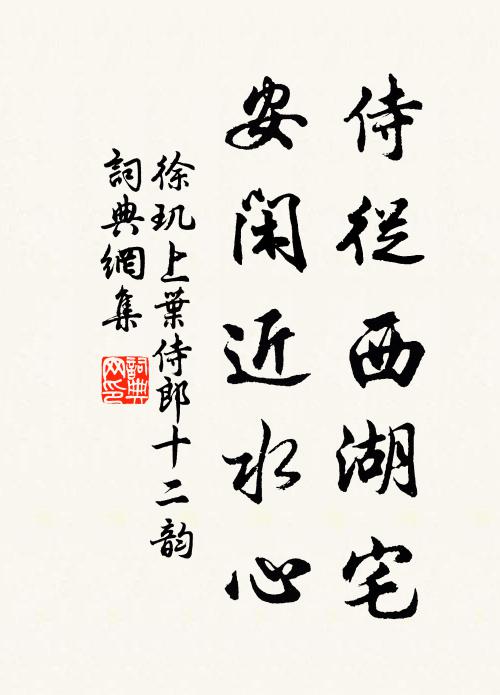 侍從西湖宅
安闲近水心
徐玑上葉侍郎十二韵
詞典網集
詞典网印